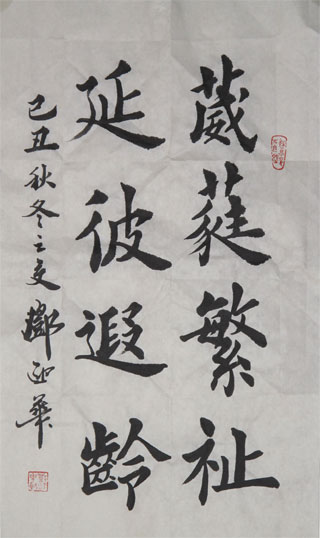 葳蕤繁祉
延彼遐龄
己丑秋冬之交鄧迎華